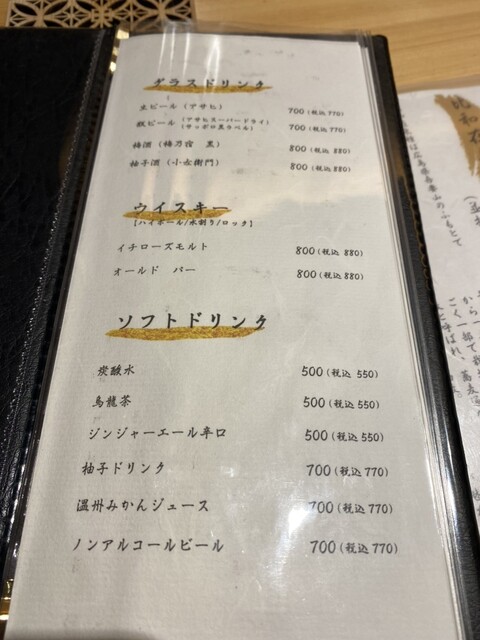 グラスドリンク
生ビール（アサヒ） 700（税込 770）
瓶ビール（アサヒスーパードライ）（サッポロ黒ラベル） 700（税込 770）
梅酒（梅乃宿 黒） 800（税込 880）
柚子酒（小左衛門） 800（税込 880）
ウイスキー
［ハイボール/水割り/ロック］
イチローズモルト 800（税込 880）
オールド パー 800（税込 880）
ソフトドリンク
炭酸水 500（税込 550）
烏龍茶 500（税込 550）
ジンジャーエール辛口 500（税込 550）
柚子ドリンク 700（税込 770）
温州みかんジュース 700（税込 770）
ノンアルコールビール 700（税込 770）